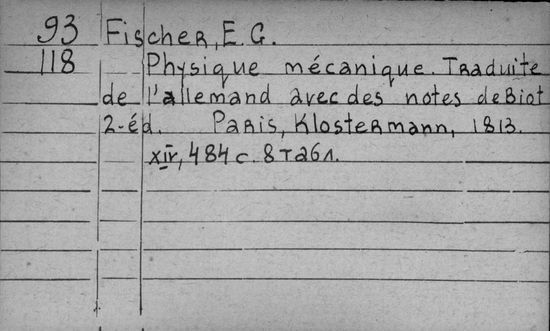 93 Fischer, E.G.
118 Physique mécanique. Traduite
de l'allemand avec des notes de Biot
2-éd. Paris, Klostermann, 1813.
XIV, 484 с. 8 табл.